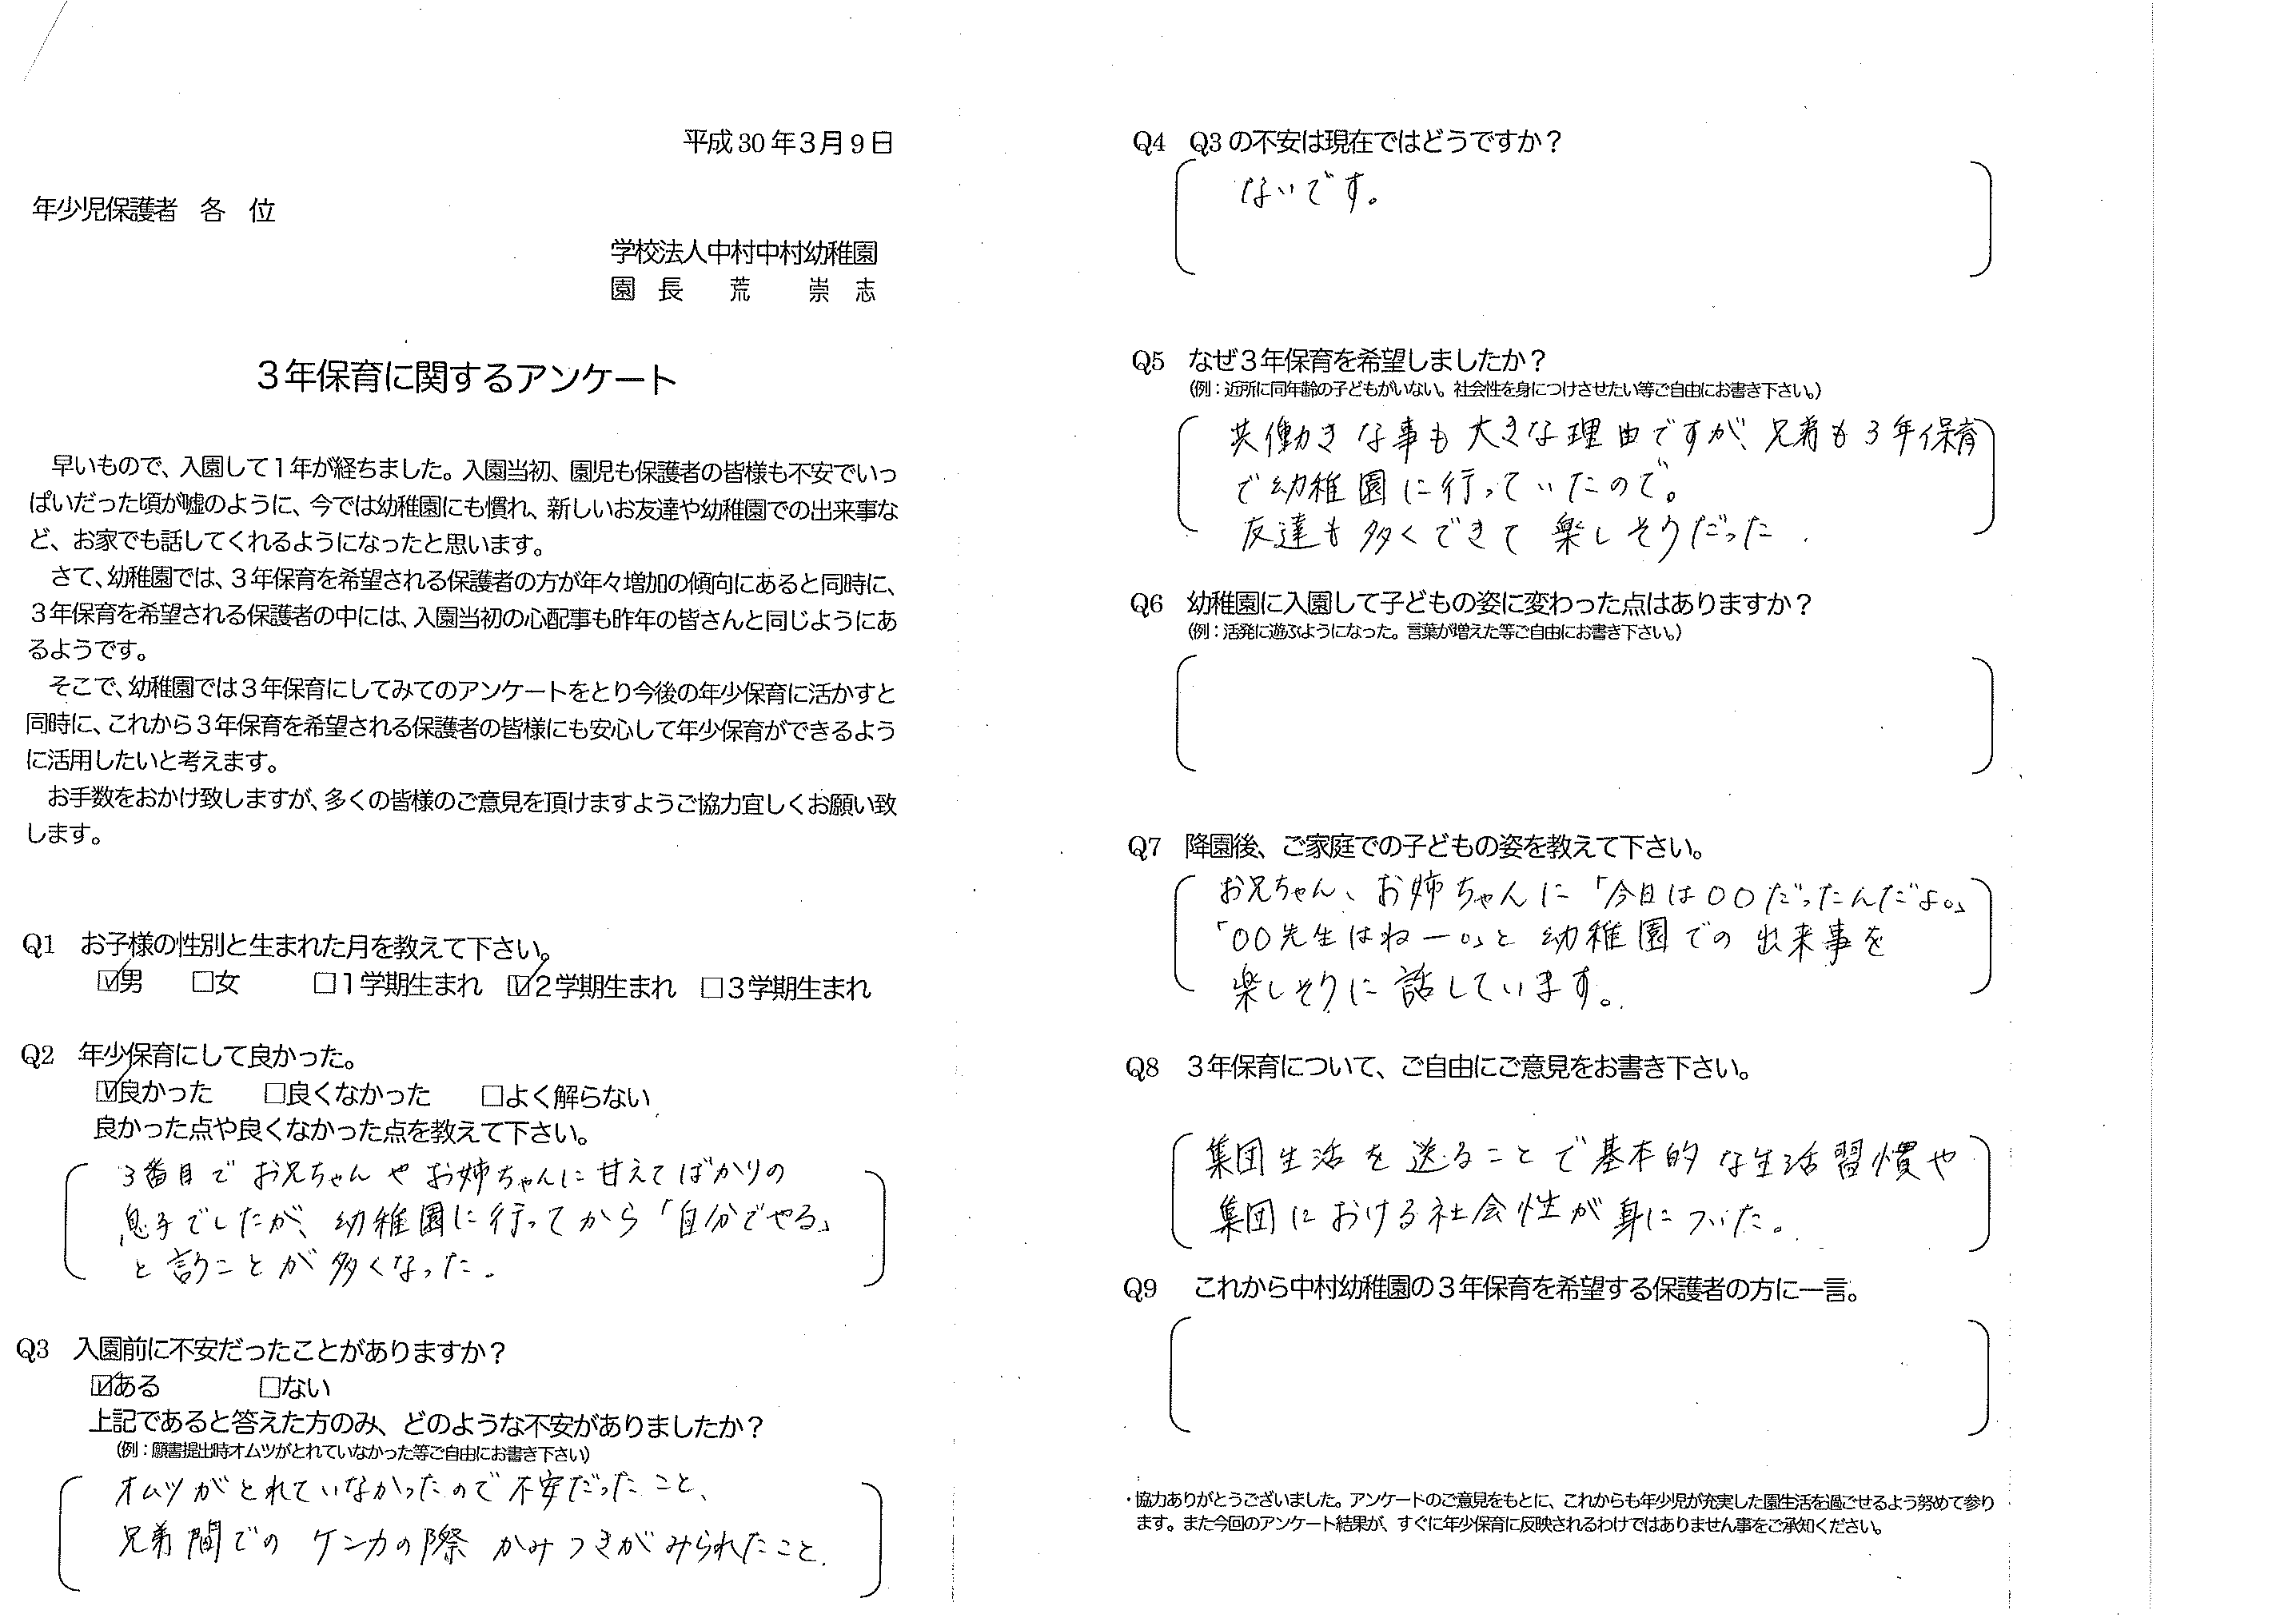 平成30年3月9日
年少児保護者　各　位
学校法人中村中村幼稚園
園　長　　荒　　崇　志
３年保育に関するアンケート
早いもので、入園して１年が経ちました。入園当初、園児も保護者の皆様も不安でいっ
ぱいだった頃が嘘のように、今では幼稚園にも慣れ、新しいお友達や幼稚園での出来事な
ど、お家でも話してくれるようになったと思います。
さて、幼稚園では、３年保育を希望される保護者の方が年々増加の傾向にあると同時に、
３年保育を希望される保護者の中には、入園当初の心配事も昨年の皆さんと同じようにあ
るようです。
そこで、幼稚園では３年保育にしてみてのアンケートをとり今後の年少保育に活かすと
同時に、これから３年保育を希望される保護者の皆様にも安心して年少保育ができるよう
に活用したいと考えます。
お手数をおかけ致しますが、多くの皆様のご意見を頂けますようご協力宜しくお願い致
します。
Q1　お子様の性別と生まれた月を教えて下さい。
☑男　□女　□１学期生まれ　☑２学期生まれ　□３学期生まれ
Q2　年少保育にして良かった。
☑良かった　□良くなかった　□よく解らない
良かった点や良くなかった点を教えて下さい。
３番目でお兄ちゃんやお姉ちゃんに甘えてばかりの
息子でしたが、幼稚園に行ってから「自分でやる」
と言うことが多くなった。
Q3　入園前に不安だったことがありますか？
☑ある　□ない
上記であると答えた方のみ、どのような不安がありましたか？
（例：願書提出時オムツがとれていなかった等ご自由にお書き下さい）
オムツがとれていなかったので不安だったこと、
兄弟間でのケンカの際かみつきがみられたこと.
Q4　Q3の不安は現在ではどうですか？
ないです。
Q5　なぜ３年保育を希望しましたか？
（例：近所に同年齢の子どもがいない。社会性を身につけさせたい等ご自由にお書き下さい。）
共働きな事も大きな理由ですが、兄弟も３年保育
で幼稚園に行っていたので。
友達も多くできて楽しそうだった.
Q6　幼稚園に入園して子どもの姿に変わった点はありますか？
（例：活発に遊ぶようになった。言葉が増えた等ご自由にお書き下さい。）
Q7　降園後、ご家庭での子どもの姿を教えて下さい。
お兄ちゃん、お姉ちゃんに「今日は○○だったんだよ。」
「○○先生はねー。」と幼稚園での出来事を
楽しそうに話しています。
Q8　３年保育について、ご自由にご意見をお書き下さい。
集団生活を送ることで基本的な生活習慣や
集団における社会性が身についた。
Q9　これから中村幼稚園の３年保育を希望する保護者の方に一言。
・協力ありがとうございました。アンケートのご意見をもとに、これからも年少児が充実した園生活を過ごせるよう努めて参り
ます。また今回のアンケート結果が、すぐに年少保育に反映されるわけではありません事をご承知ください。